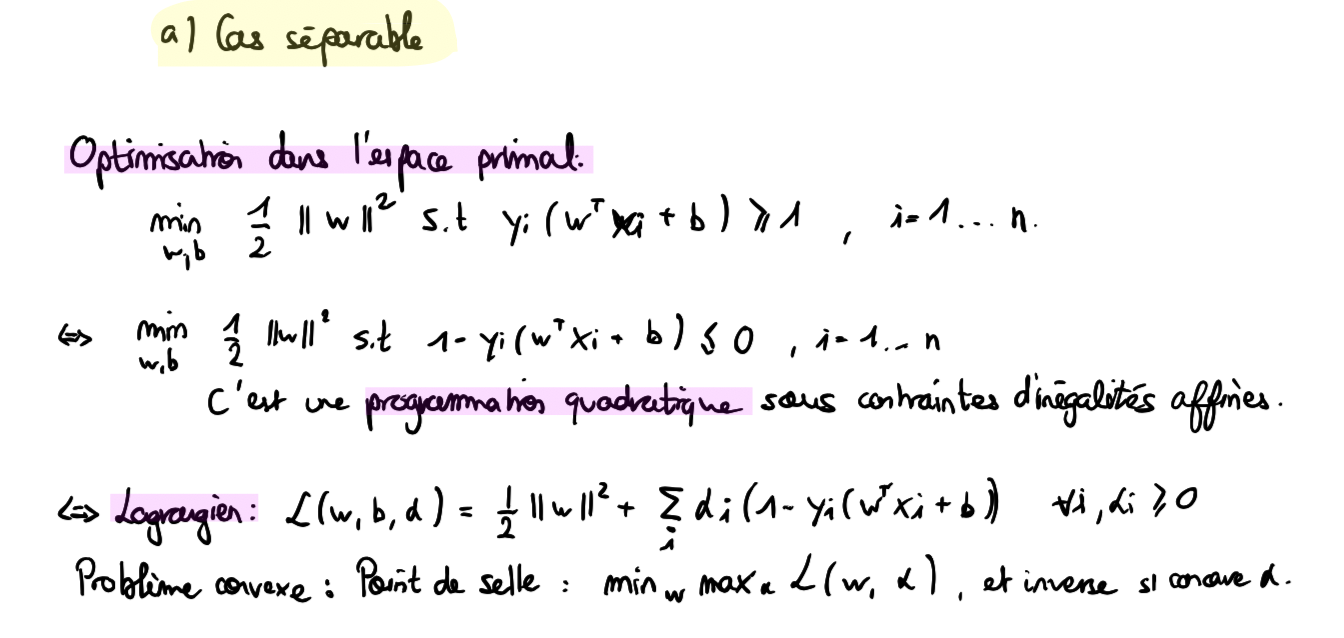 a) Cas séparable
Optimisation dans l'espace primal:
min w,b 1/2 ||w||² s.t yi (wᵀ xi + b) ⩾ 1 , i=1...n.
<=> min w,b 1/2 ||w||² s.t 1- yi (wᵀxi + b) ≤ 0 , i=1...n
C'est une programmation quadratique sous contraintes d'inégalités affines.
<=> Lagrangien: L(w, b, α) = 1/2 ||w||² + Σi αi (1- yi(wᵀxi + b)) ∀i, αi ⩾ 0
Problème convexe : Point de selle : min w max α L(w, α) , et inverse si concave α.